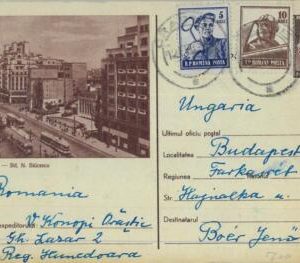 5
10
R.P.ROMINA POSTA
R.P.ROMINA POSTA
Ungaria
Bd. N. Bălcescu
Ultimul oficiu poștal
Localitatea Budapest
Regiunea Farkasrét
Str. Hajnalka u.
Destinatarul
Boér Jenő
Romania
expeditorului V. Konopi Orăștie
Gh. Lazar 2
Reg. Hunedoara